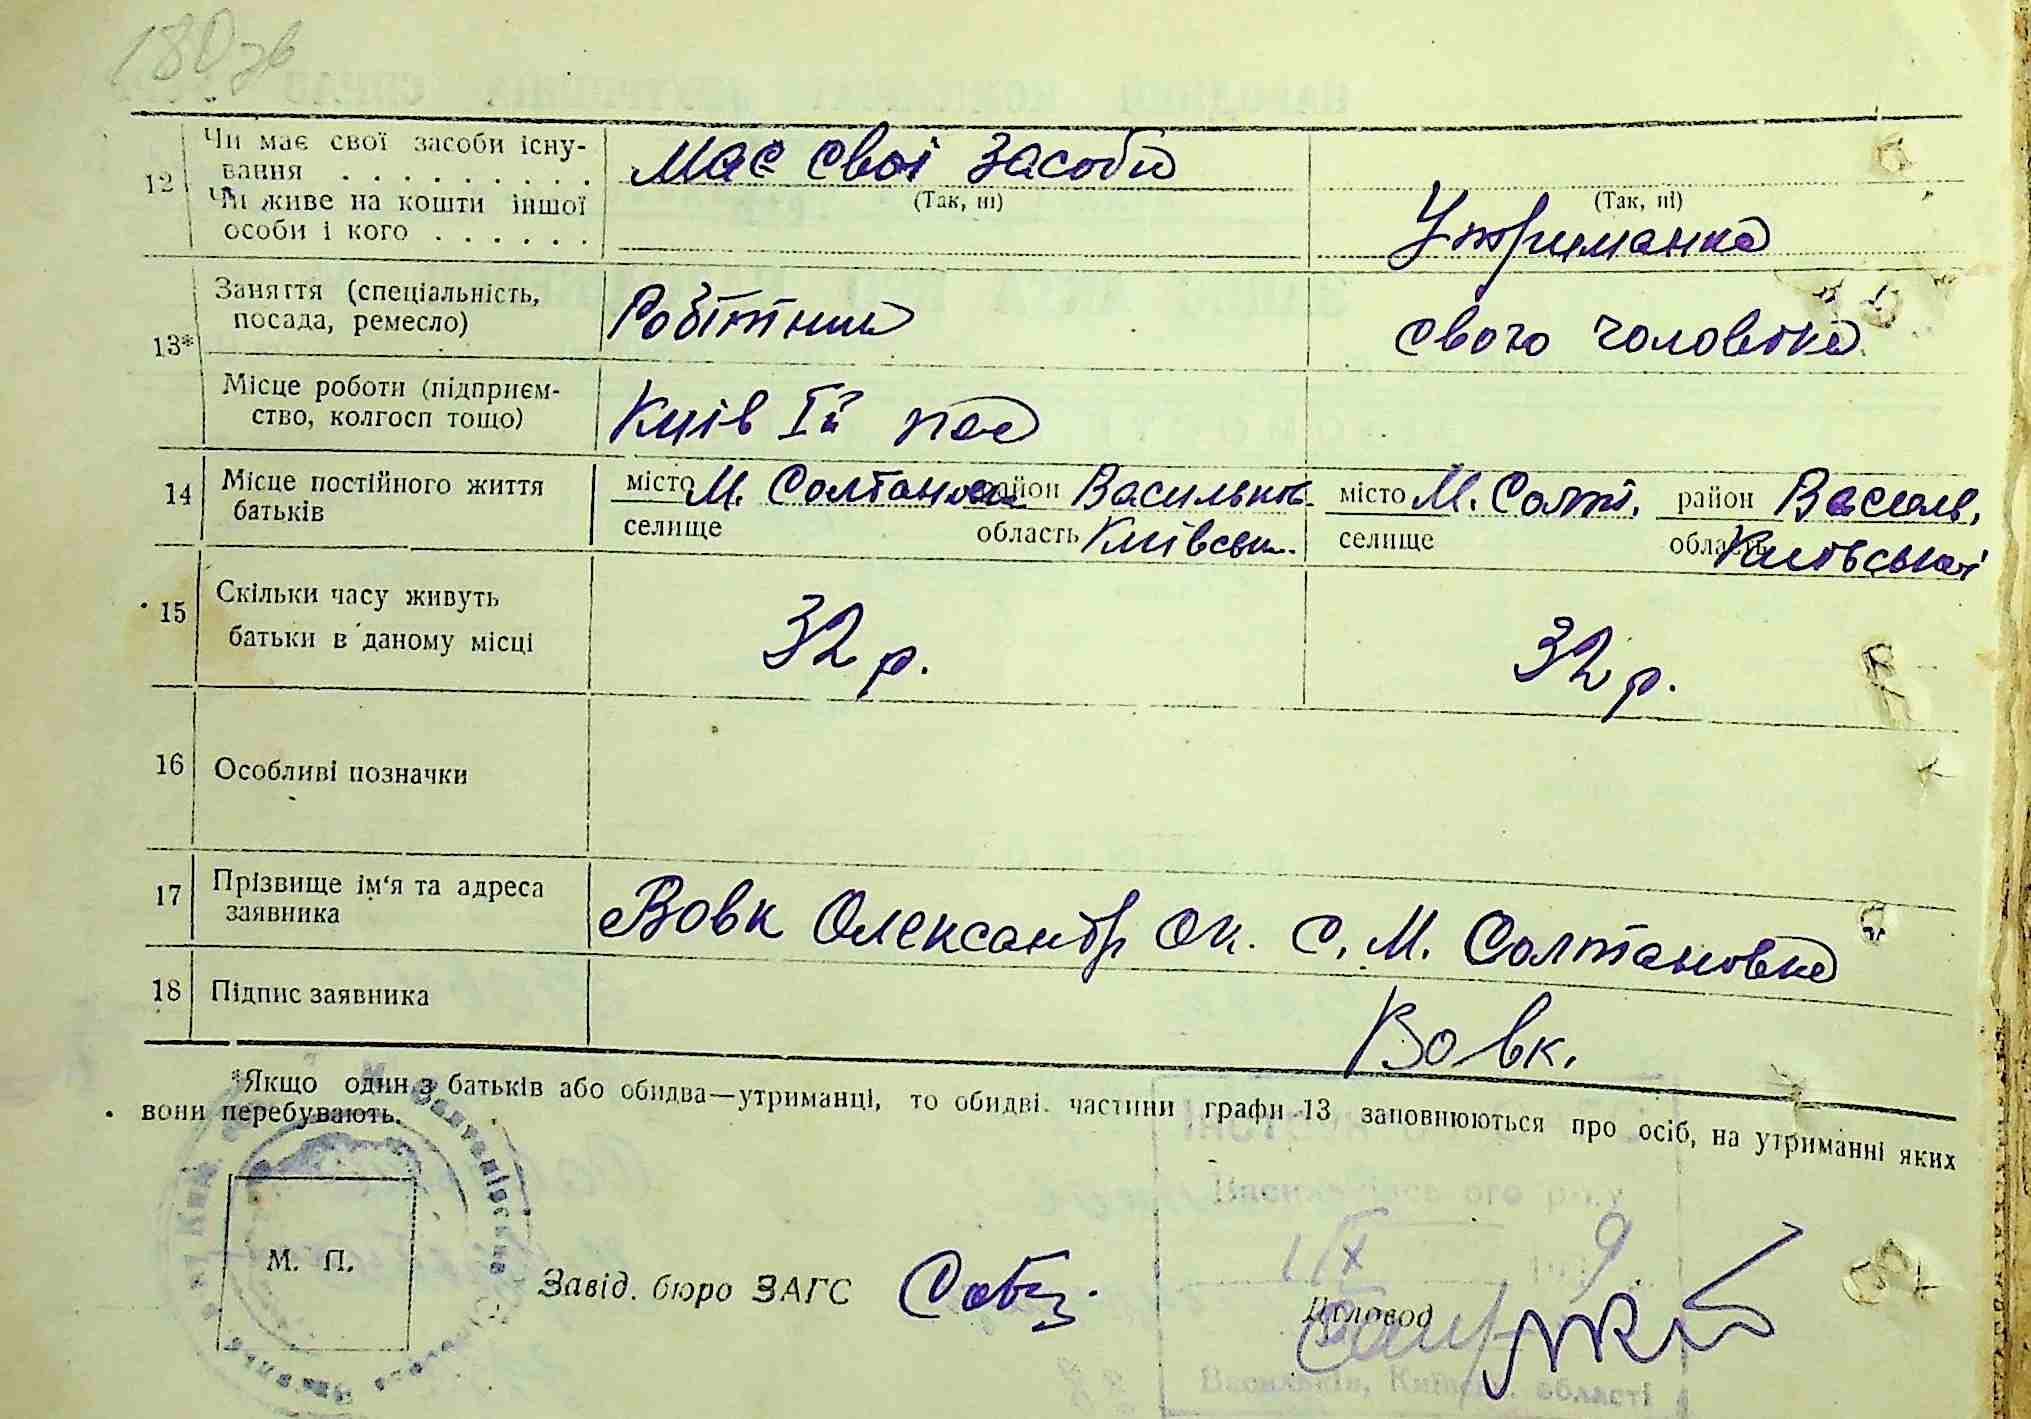 180 зв
12 Чи має свої засоби існу-
вання . . . . . . . . . має свої засоби
(Так, ні) (Так, ні)
Чи живе на кошти іншої
особи і кого . . . . . . Утриманка
13* Заняття (спеціальність,
посада, ремесло) Робітник свого чоловіка
Місце роботи (підприєм-
ство, колгосп тощо) Київ
14 Місце постійного життя
батьків
місто М. Солтанівка район Васильків. місто М. Солт. район Васильк.
селище область Київськ. селище область Київської
15 Скільки часу живуть
батьки в даному місці 32 р. 32 р.
16 Особливі позначки
17 Прізвище ім'я та адреса
заявника Вовк Олександр Ок. С. М. Солтановка
18 Підпис заявника Вовк.
*Якщо один з батьків або обидва—утриманці, то обидві частини графи 13 заповнюються про осіб, на утриманні яких
вони перебувають.
Васильківського р-ну
IX 9
М. П. Завід. бюро ЗАГС Діловод
Васильків, Київськ. області